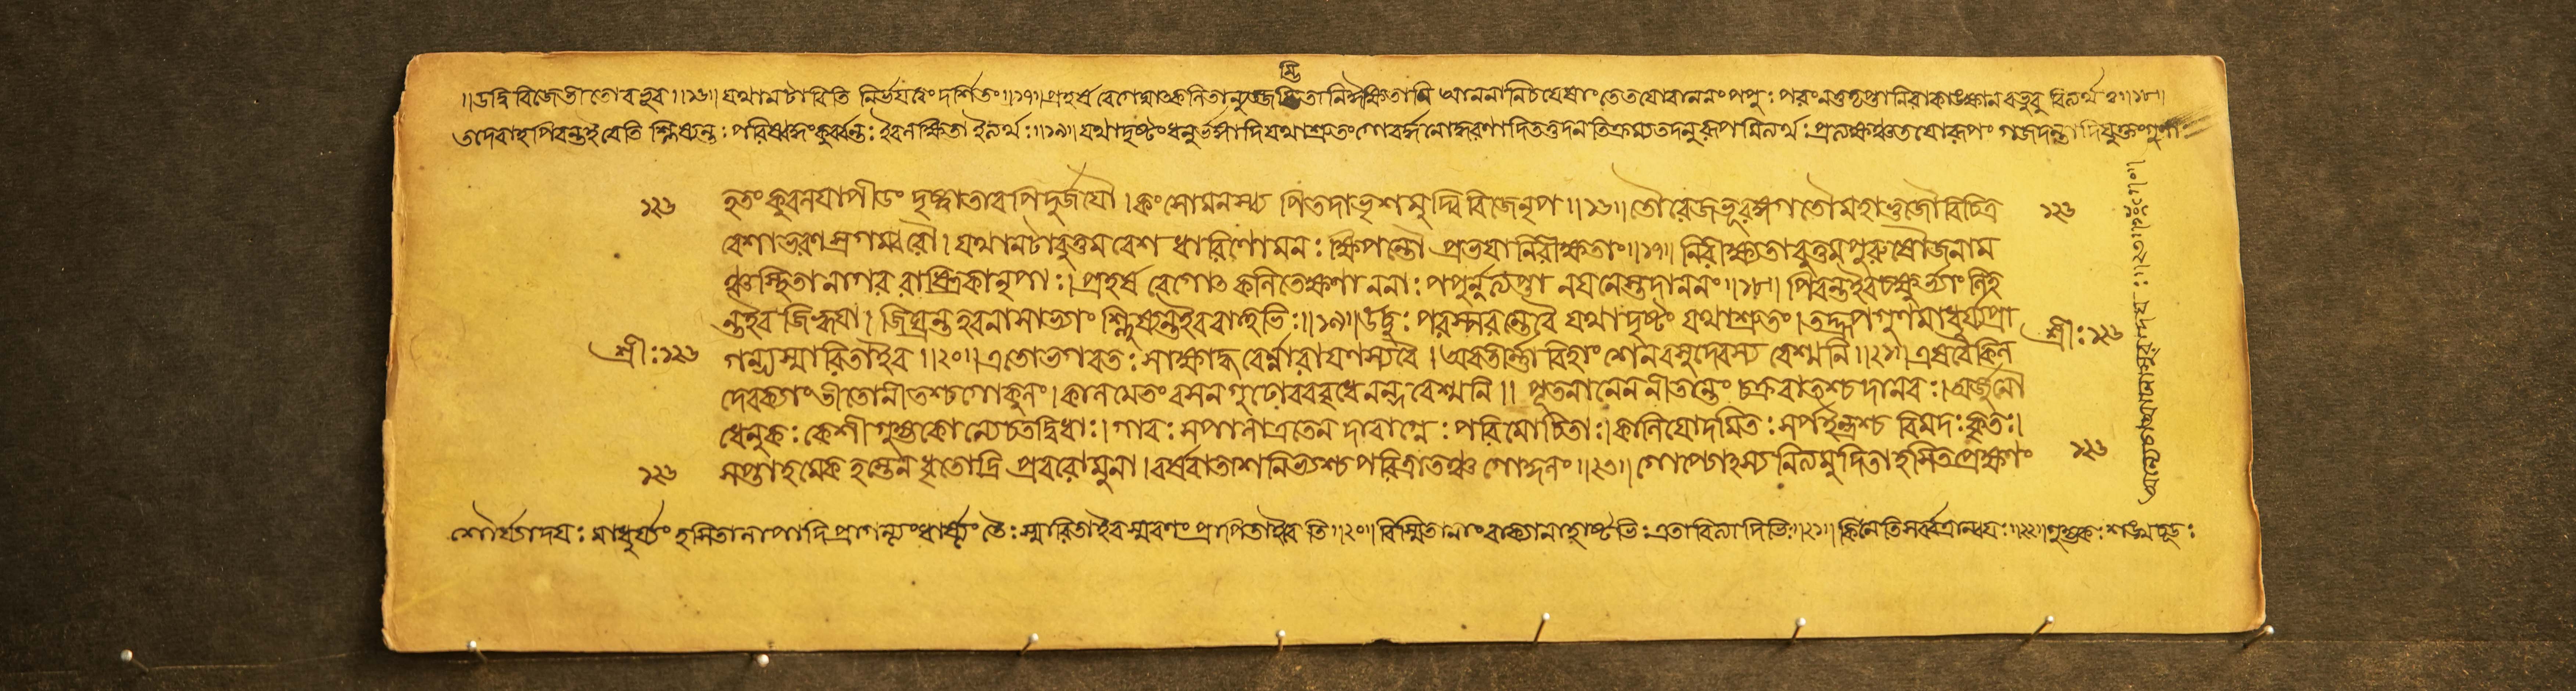 ॥উদ্বিবিজেভীতোবভূব॥১৬॥যথানটাবিতি নির্ভযত্বংদর্শিতং॥১৭॥প্রহর্ষবেগেনোৎকলিতান্যুজ্জৃম্ভিতানিঈক্ষিতানি আননানিচযেষাংতেতযোরাননংপপুঃপরংনতুতৃপ্তানিরাকাঙক্ষানবভূবুরিত্যর্থঃ॥১৮॥
তদেবাহপিবন্তইবেতি শ্লিষ্যন্তঃপরিষ্বঙ্গংকুর্ব্বন্তঃইবলক্ষিতাইত্যর্থঃ॥১৯॥যথাদৃষ্টংধনুর্ভঙ্গাদিযথাশ্রুতংগোবর্দ্ধনোদ্ধরণাদিতত্তদনতিক্রম্যতদনুরূপমিত্যর্থঃপ্রত্যক্ষঞ্চতযোরূপং গজদন্তাদিযুক্তংগুণাঃ
১২৬ হতং কুবলযাপীডং দৃষ্ট্বাতাবপিদুর্জযৌ।কংসোমনস্ব্যপিতদাভৃশমুদ্বিবিজেনৃপ॥১৬॥তৌরেজতূরঙ্গগতৌমহাভুজৌবিচিত্র ১২৬
বেশাভরণস্রগম্বরৌ।যথানটাবুত্তমবেশধারিণৌমনঃক্ষিপন্তৌ প্রভযানিরীক্ষতাং॥১৭॥নিরীক্ষ্যতাবুত্তমপুরুষৌজনাম
ঞ্চস্থিতানাগররাষ্ট্রিকানৃপাঃ।প্রহর্ষবেগোৎকলিতেক্ষণাননাঃপপুর্নতৃপ্তা নযনৈস্তদাননং॥১৮॥পিবন্তইবচক্ষুর্ভ্যাংলিহ
ন্তইবজিহ্বযা।জিঘ্রন্তইবনাসাভ্যাং শ্লিষ্যন্তইববাহুভিঃ॥১৯॥ঊচুঃপরস্পরন্তেবৈ যথাদৃষ্টং যথাশ্রুতং।তদ্রূপগুণমাধুর্য্যপ্রা
শ্রীঃ১২৬ গল্ভ্যস্মারিতাইব॥২০॥এতৌভগবতঃসাক্ষাদ্ধরের্নারাযণস্যবৈ।অবতীর্ণাবিহাংশেনবসুদেবস্য বেশ্মনি॥২১॥এষবৈকিল শ্রীঃ১২৬
দেবক্যাংজাতোনীতশ্চগোকুলং।কালমেতংবসনগূঢোববৃধেনন্দবেশ্মনি॥ পূতনানেননীতান্তং চক্রবাতশ্চদানবঃ।অর্জুনৌ
ধেনুকঃকেশীগুহ্যকোন্যেচতদ্বিধাঃ।গাবঃসপালাএতেন দাবাগ্নেঃপরিমোচিতাঃ।কালিযোদমিতঃসর্পইন্দ্রশ্চ বিমদঃকৃতঃ।
১২৬ সপ্তাহমেকহস্তেনধৃতোদ্রি প্রবরোমুনা।বর্ষবাতাশনিভ্যশ্চপরিত্রাতঞ্চ গোকুলং॥২৩॥গোপ্যোস্যনিত্যমুদিতহসিতপ্রেক্ষণং ১২৬
শৌর্য্যাদযঃমাধুর্য্যং হসিতালাপাদিপ্রাগল্ভ্যংধার্ষ্ট্যং তৈঃস্মারিতাইবস্মরণংপ্রাপিতাইবেতি॥২০॥বিস্মিতানাংবাক্যান্যাহাষ্টভিঃএতাবিত্যাদিভিঃ॥২১॥কিলেতিসর্ব্বত্রান্বযঃ॥২২॥গুহ্যকঃশঙ্খচূডঃ